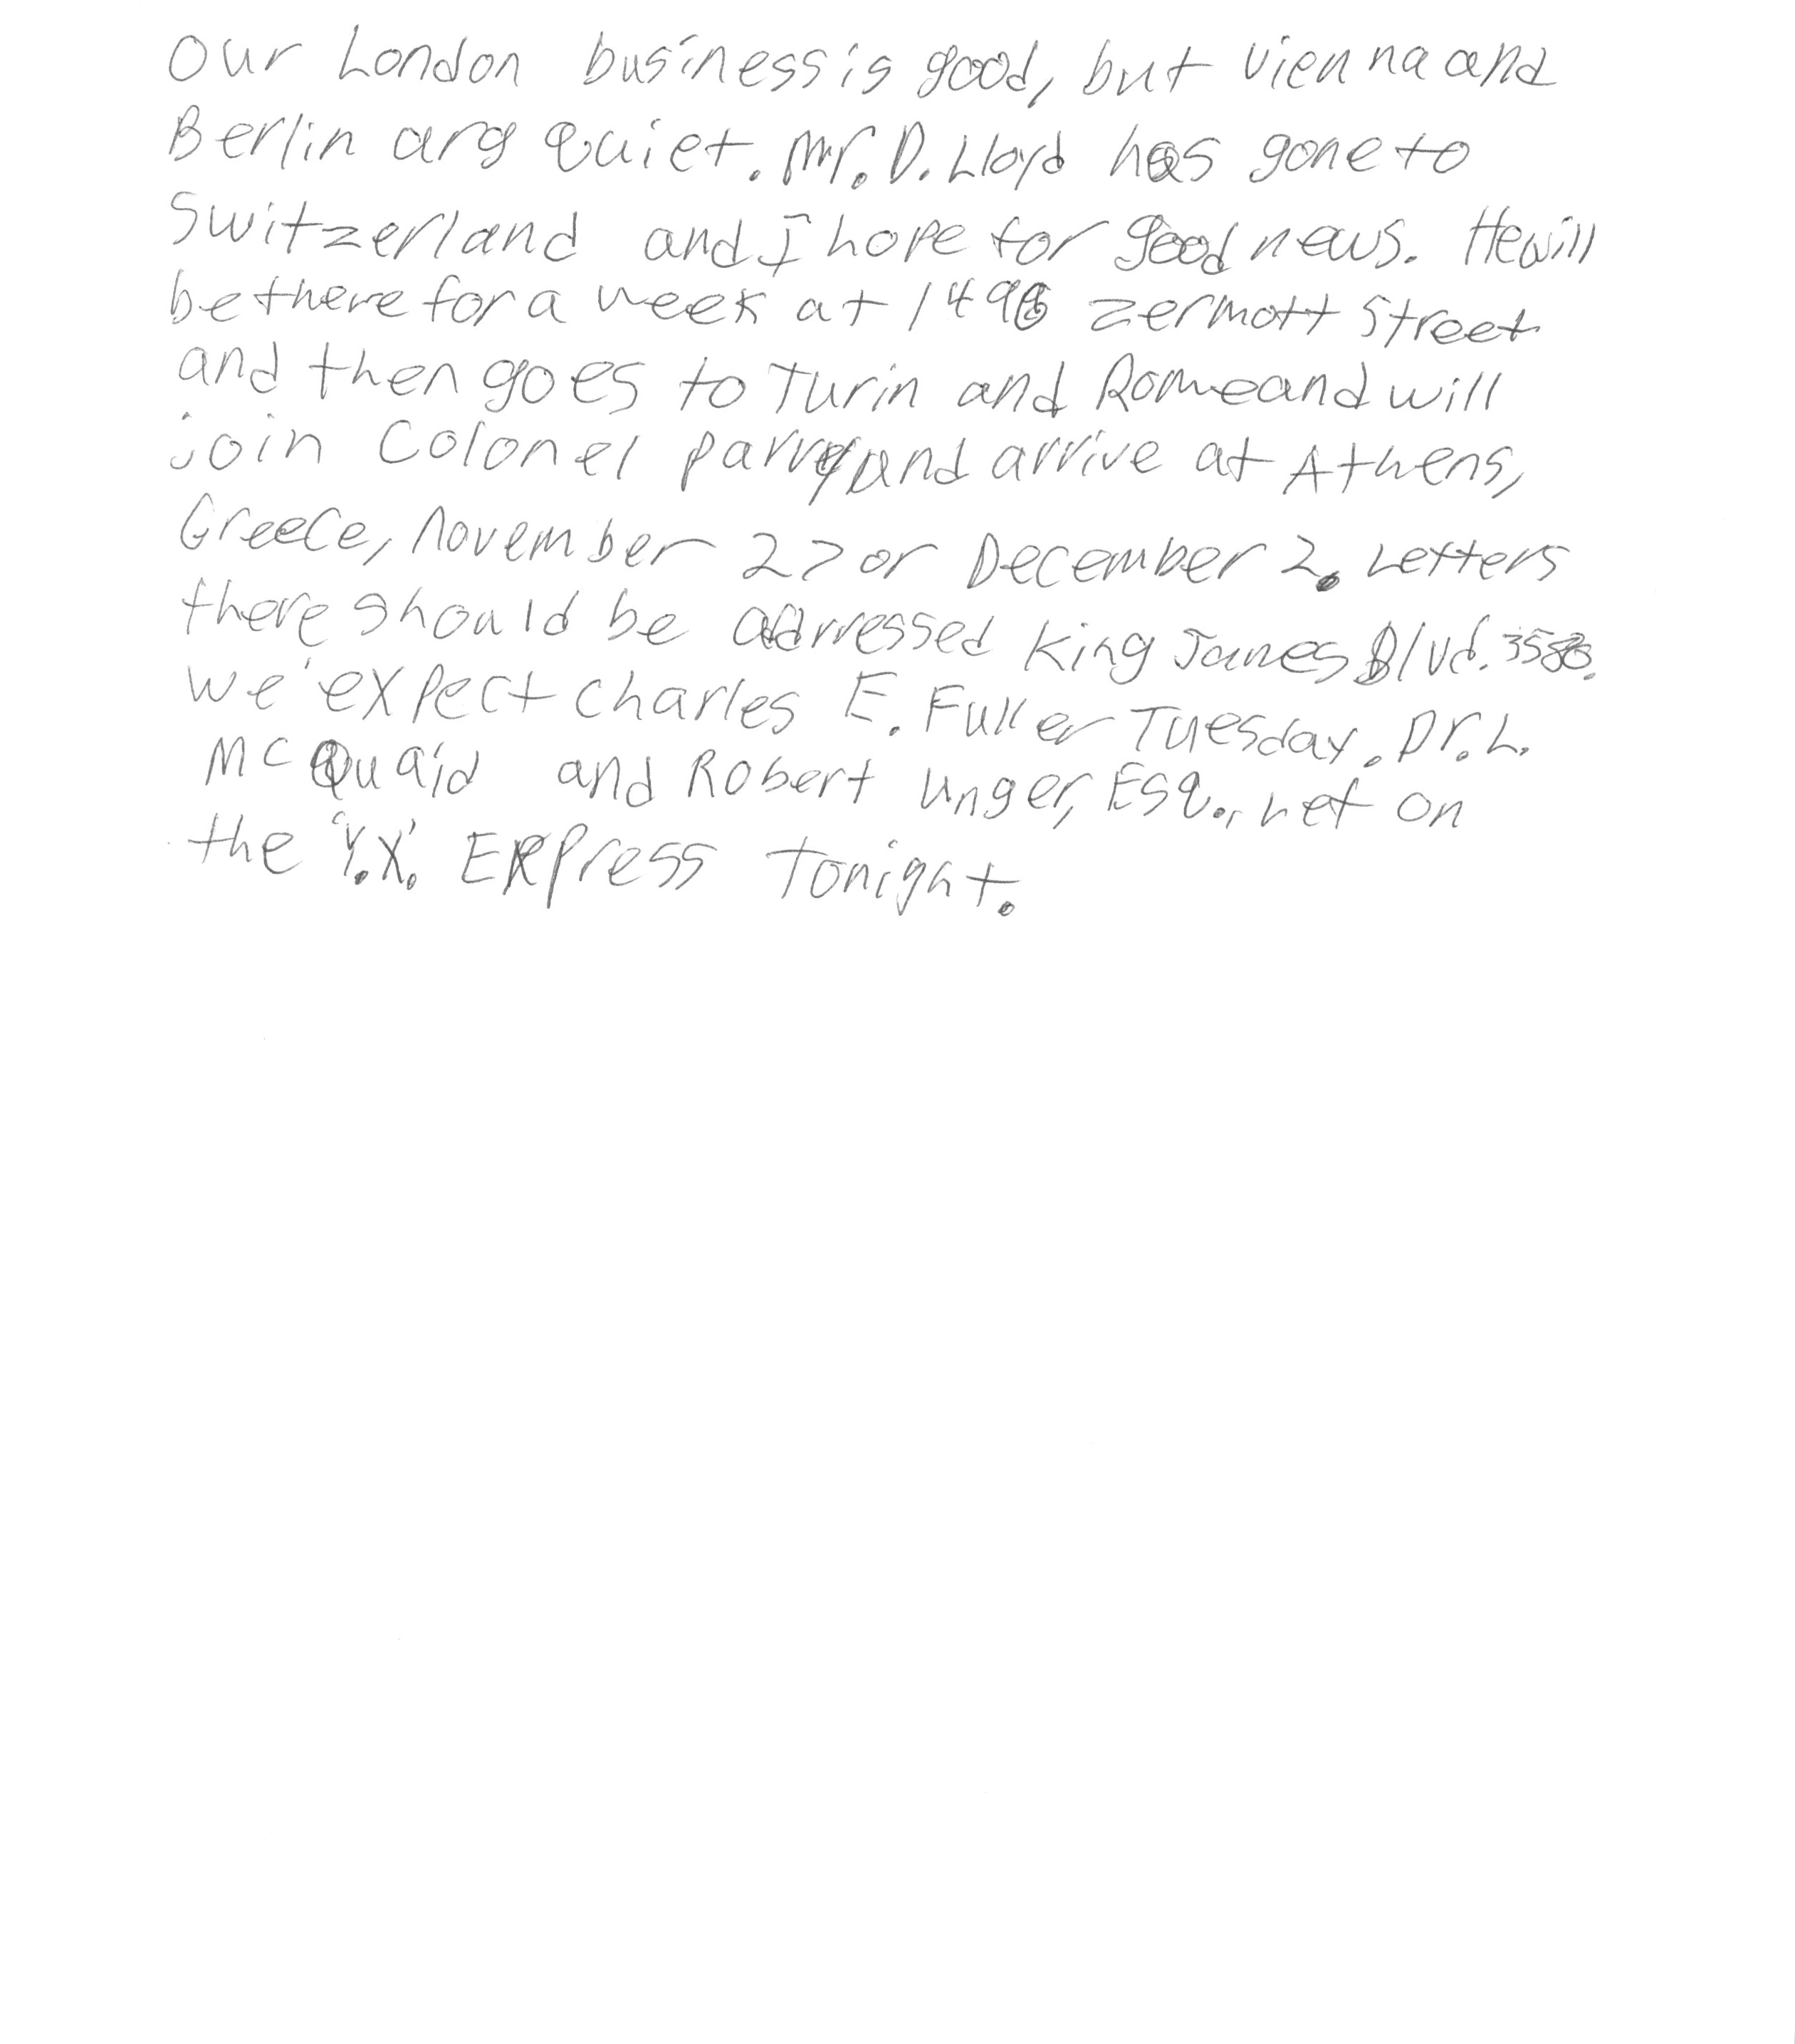 Our London business is good, but Vienna and
Berlin are quiet. Mr. D. Lloyd has gone to
Switzerland and I hope for good news. He will
be there for a week at 1496 Zermott Street
and then goes to Turin and Rome and will
join Colonel Parry and arrive at Athens,
Greece, November 27 or December 2. Letters
there should be addressed King James Blvd. 3580.
We expect Charles E. Fuller Tuesday. Dr. L.
McQuaid and Robert Unger, Esq., left on
the 'Y.X.' Express Tonight.